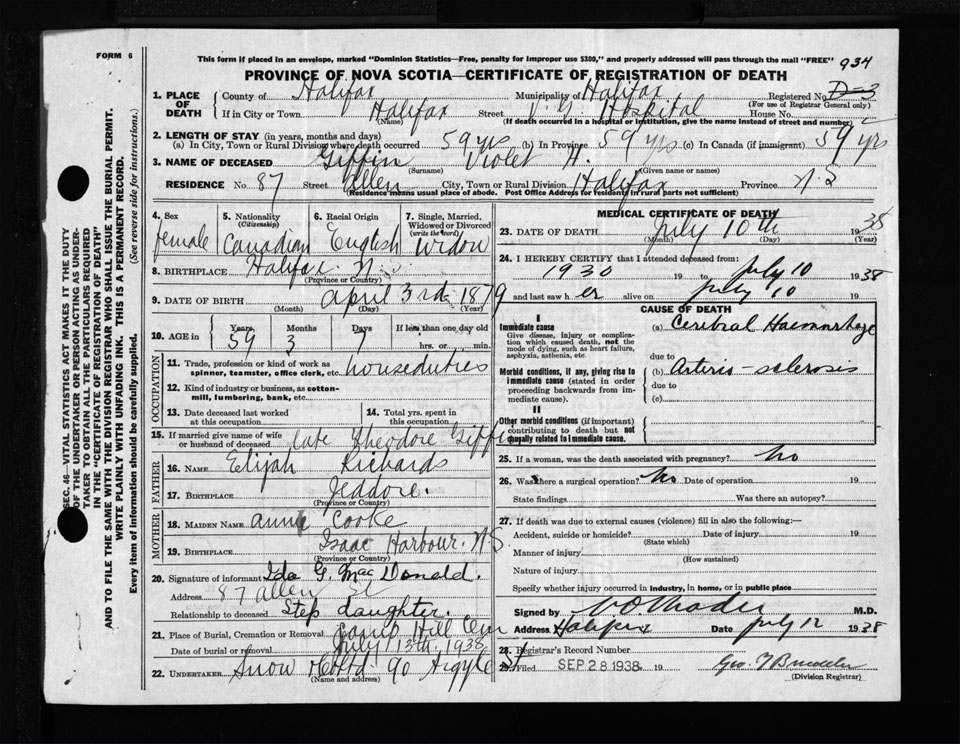 FORM 6
This form if placed in an envelope, marked "Dominion Statistics—Free, penalty for improper use $300," and properly addressed will pass through the mail "FREE" 934
PROVINCE OF NOVA SCOTIA—CERTIFICATE OF REGISTRATION OF DEATH
SEC. 46—VITAL STATISTICS ACT MAKES IT THE DUTY
OF THE UNDERTAKER OR PERSON ACTING AS UNDER-
TAKER TO OBTAIN ALL THE PARTICULARS REQUIRED
IN THE "CERTIFICATE OF REGISTRATION OF DEATH"
AND TO FILE THE SAME WITH THE DIVISION REGISTRAR WHO SHALL ISSUE THE BURIAL PERMIT.
WRITE PLAINLY WITH UNFADING INK. THIS IS A PERMANENT RECORD.
Every item of information should be carefully supplied. (See reverse side for instructions.)
1. PLACE OF DEATH
County of Halifax Municipality of Halifax Registered No. D-3
(For use of Registrar General only)
If in City or Town Halifax Street V. G. Hospital House No.
(Name) (If death occurred in a hospital or institution, give the name instead of street and number)
2. LENGTH OF STAY (in years, months and days)
(a) In City, Town or Rural Division where death occurred 59 yrs (b) In Province 59 yrs (c) In Canada (if immigrant) 59 yrs
3. NAME OF DECEASED Giffin Violet H.
(Surname) (Given name or names)
RESIDENCE No. 87 Street Allen City, Town or Rural Division Halifax Province N.S
(Residence means usual place of abode. Post Office Address for residents in rural parts not sufficient)
4. Sex female
5. Nationality (Citizenship) Canadian
6. Racial Origin English
7. Single, Married, Widowed or Divorced (write the word) Widow
8. BIRTHPLACE Halifax N.S.
(Province or Country)
9. DATE OF BIRTH April 3rd 1879
(Month) (Day) (Year)
10. AGE in Years 59 Months 3 Days 7 If less than one day old hrs. or min.
OCCUPATION
11. Trade, profession or kind of work as spinner, teamster, office clerk, etc. houseduties
12. Kind of industry or business, as cotton-mill, lumbering, bank, etc.
13. Date deceased last worked at this occupation
14. Total yrs. spent in this occupation
15. If married give name of wife or husband of deceased late Theodore Giffin
FATHER
16. NAME Elijah Richards
17. BIRTHPLACE Jeddore.
(Province or Country)
MOTHER
18. MAIDEN NAME Annie Cooke
19. BIRTHPLACE Isaac Harbour. N.S.
(Province or Country)
20. Signature of informant Ida G. Mac Donald.
Address 87 Allen St
Relationship to deceased Step daughter.
21. Place of Burial, Cremation or Removal Camp Hill Cem
Date of burial or removal July 13th, 1938
22. UNDERTAKER Snow Co Ltd 90 Argyle St
(Name and address)
MEDICAL CERTIFICATE OF DEATH
23. DATE OF DEATH July 10th 1938
(Month) (Day) (Year)
24. I HEREBY CERTIFY that I attended deceased from:
1930 19 to July 10 1938
and last saw her alive on July 10 19
CAUSE OF DEATH
I
Immediate cause
Give disease, injury or complication which caused death, not the mode of dying, such as heart failure, asphyxia, asthenia, etc
(a) Cerebral Haemorrhage
due to
Morbid conditions, if any, giving rise to immediate cause (stated in order proceeding backwards from immediate cause).
(b) Arterio-sclerosis
due to
(c)
II
Other morbid conditions (if important) contributing to death but not causally related to immediate cause.
25. If a woman, was the death associated with pregnancy? No
26. Was there a surgical operation? No Date of operation
State findings Was there an autopsy?
27. If death was due to external causes (violence) fill in also the following:—
Accident, suicide or homicide? Date of injury 19
(State which)
Manner of injury
(How sustained)
Nature of injury
Specify whether injury occurred in Industry, in home, or in public place
Signed by M.D.
Address Halifax Date July 12 1938
28. Registrar's Record Number
29. Filed SEP 28 1938 19
(Division Registrar)